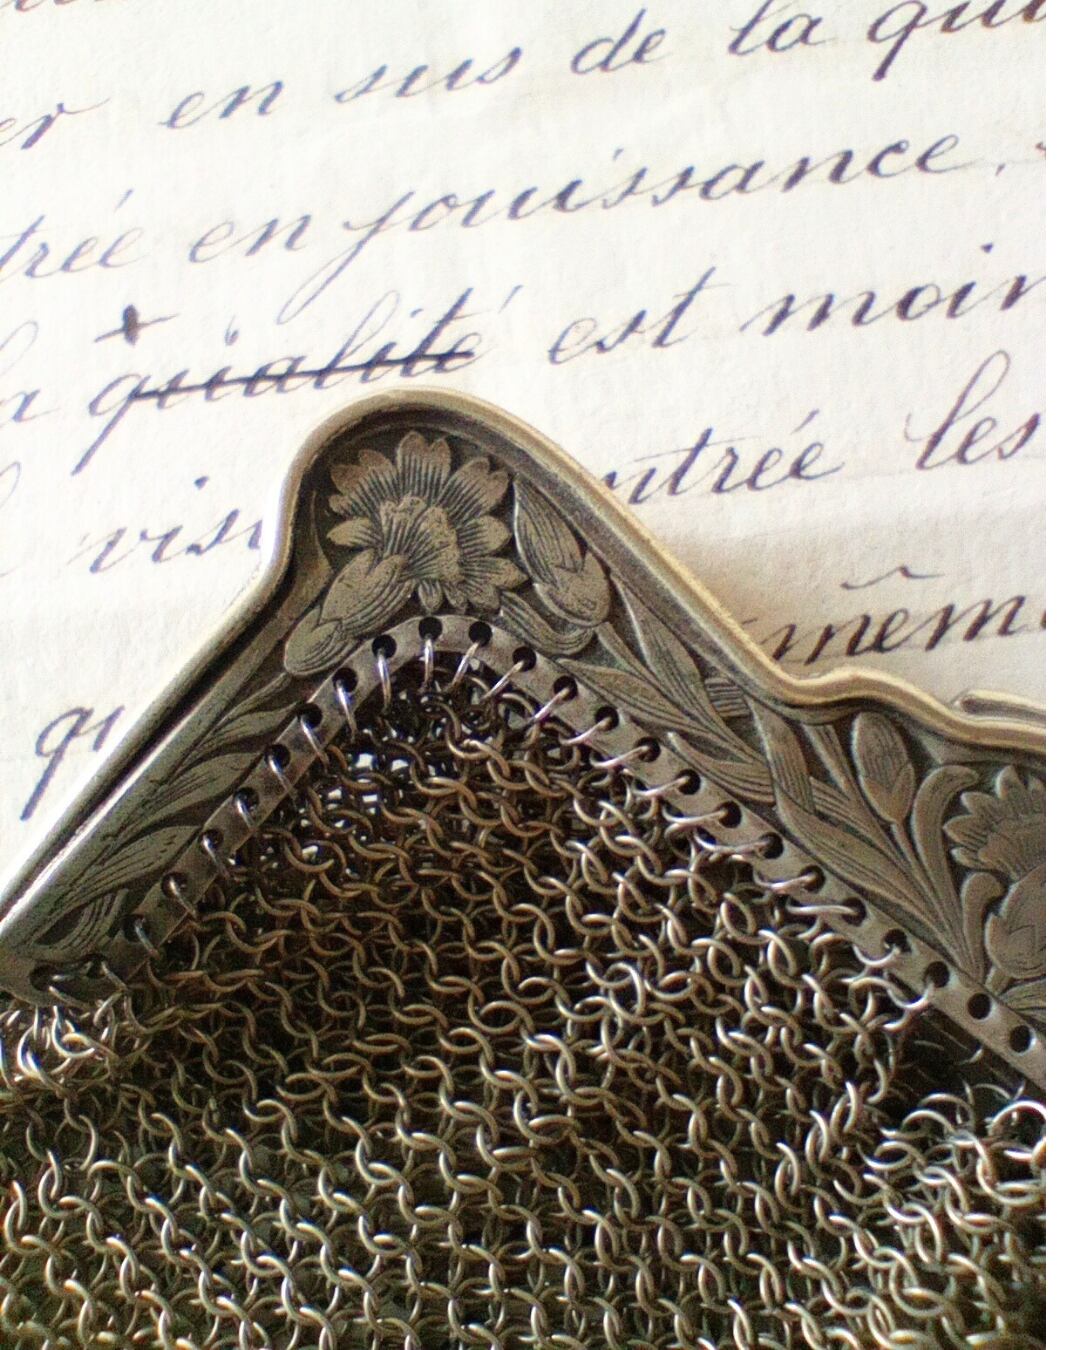 er en sus de la qu
trée en jouissance.
a qualité est moin
vis ntrée les
même
qu